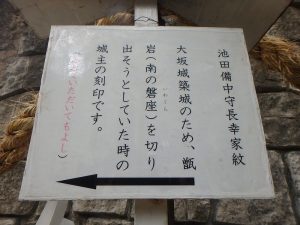 池田備中守長幸家紋
大坂城築城のため、甑
いわくら
岩(南の磐座)を切り
出そうとしていた時の
城主の刻印です。
いただいてもよし)